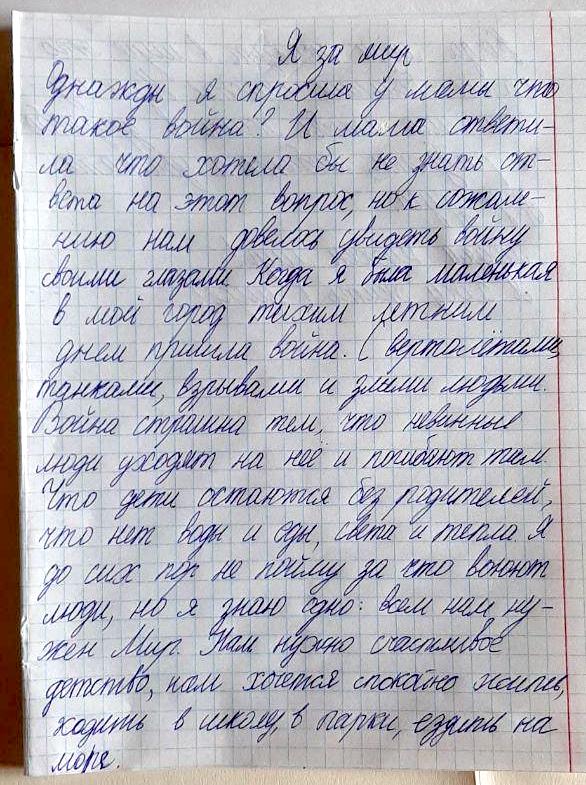 Я за мир
Однажды я спросила у мамы что
такое война? И мама ответи-
ла что хотела бы не знать от-
вета на этот вопрос, но к сожале-
нию нам довелось увидеть войну
своими глазами. Когда я была маленькая
в мой город тихим летним
днем пришла война. С вертолётами,
танками, взрывами и злыми людьми.
Война страшна тем, что невинные
люди уходят на неё и погибают там.
Что дети остаются без родителей,
что нет воды и еды, света и тепла. Я
до сих пор не пойму за что воюют
люди, но я знаю одно: всем нам ну-
жен Мир. Нам нужно счастливое
детство, нам хочется спокойно жить,
ходить в школу, в парки, ездить на
море.